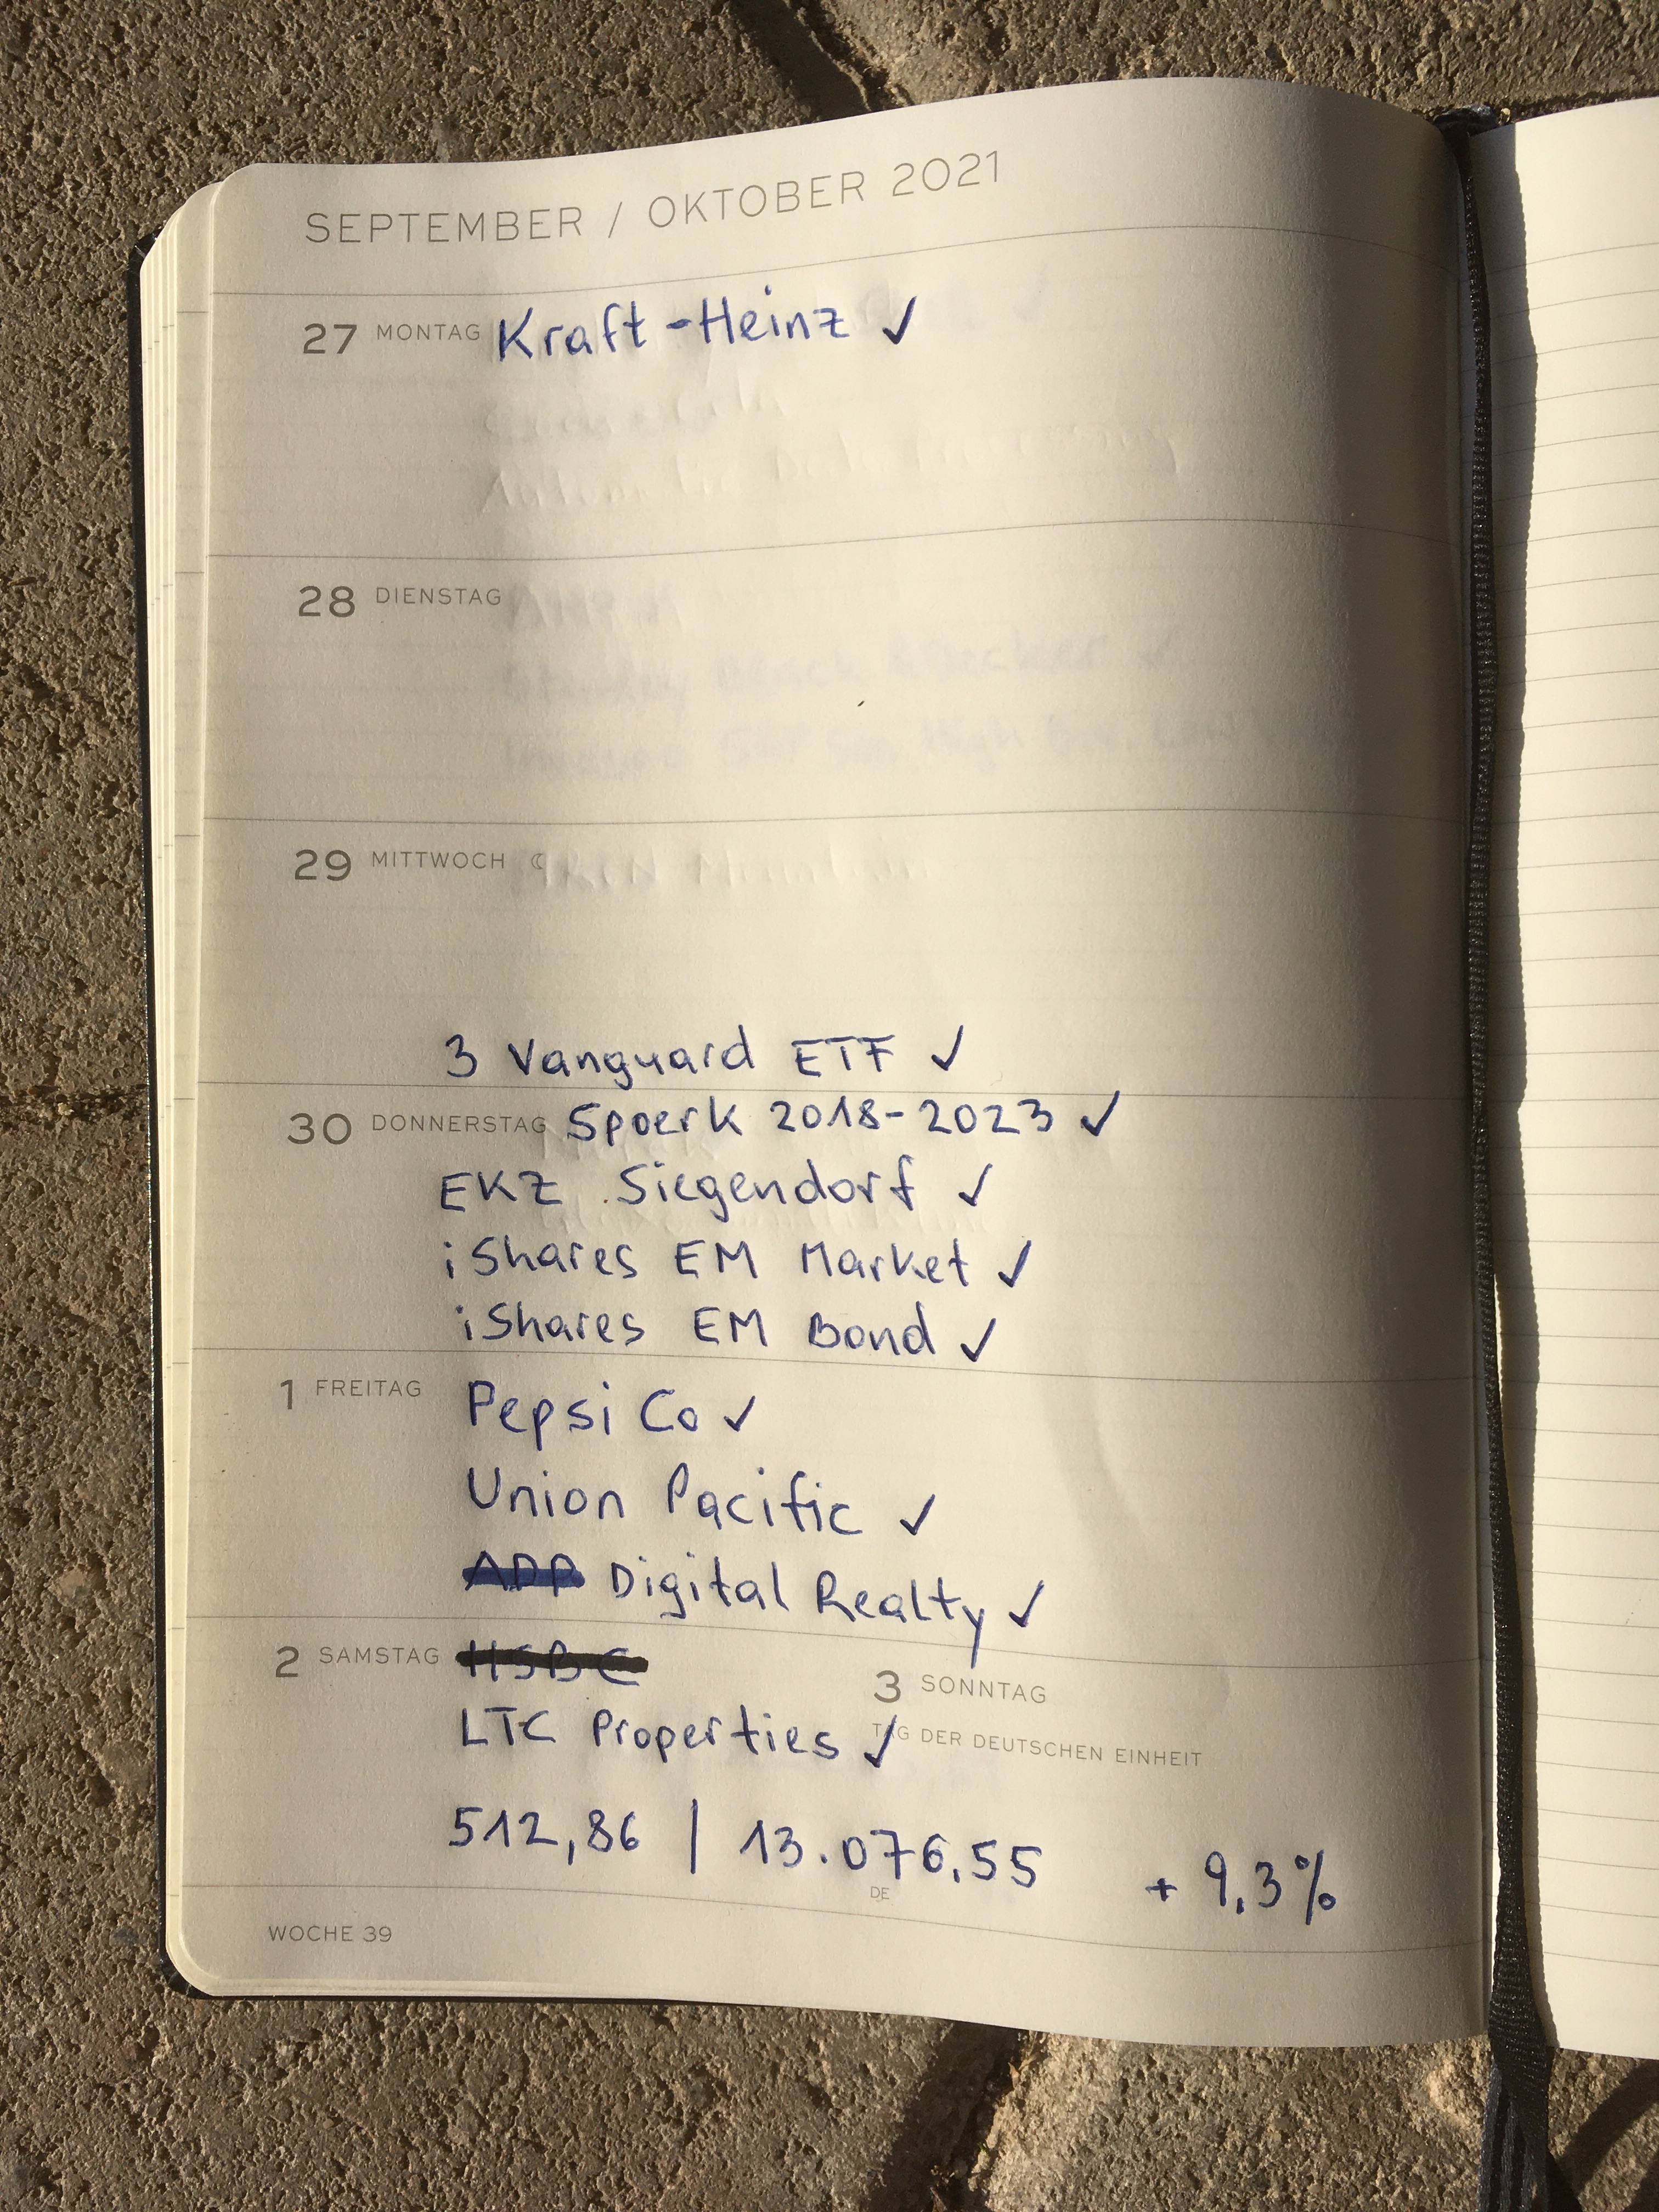 SEPTEMBER / OKTOBER 2021
27 MONTAG Kraft-Heinz ✓
28 DIENSTAG
29 MITTWOCH ☾
3 Vanguard ETF ✓
30 DONNERSTAG Spoerk 2018-2023 ✓
EKZ Siegendorf ✓
iShares EM Market ✓
iShares EM Bond ✓
1 FREITAG Pepsi Co ✓
Union Pacific ✓
ADP Digital Realty ✓
2 SAMSTAG HSBC
3 SONNTAG
LTC Properties ✓
TAG DER DEUTSCHEN EINHEIT
512,86 | 13.076,55 + 9,3%
DE
WOCHE 39